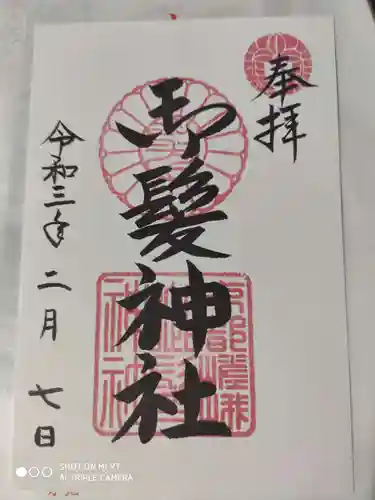 奉拝
御髪神社
令和三年二月七日
SHOT ON MI 9T
AI TRIPLE CAMERA